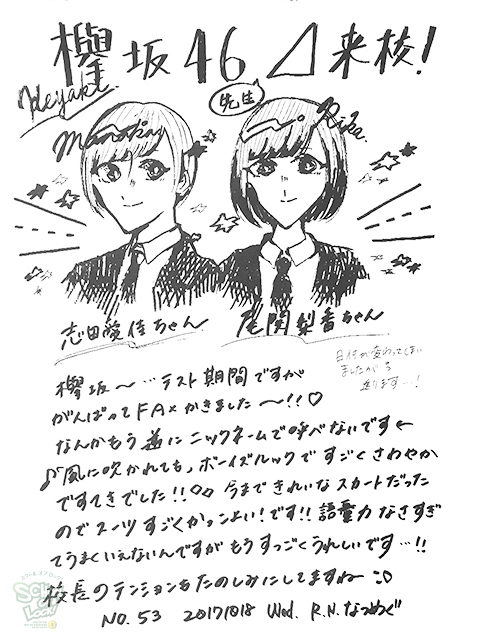 欅坂46 ⊿ 来校!
Keyaki
先生
Manatsu
Rika.
志田愛佳ちゃん
尾関梨香ちゃん
日付が変わってしまい
ましたがら
送ります…!
欅坂〜…テスト期間ですが
がんばってFAXかきました〜!!♡
なんかもう逆にニックネームで呼べないです←
♪風に吹かれても,ボーイズルックですごくさわやか
ですてきでした!!◇◇今まできれいなスカートだった
のでスーツすごくかっこよい!です!!語彙力なさすぎ
てうまくいえないんですがもうすっごくうれしいです…!!
校長のテンションもたのしみにしてますねー:)
NO.53 20171018 Wed. R.N.なつめぐ
SCHOOL OF LOCK!